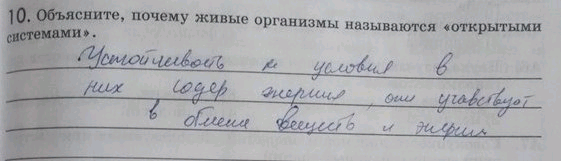 10. Объясните, почему живые организмы называются «открытыми
системами».
Устойчивость к условия в
них содер энергия, они учавствует
в обмене веществ и энергии